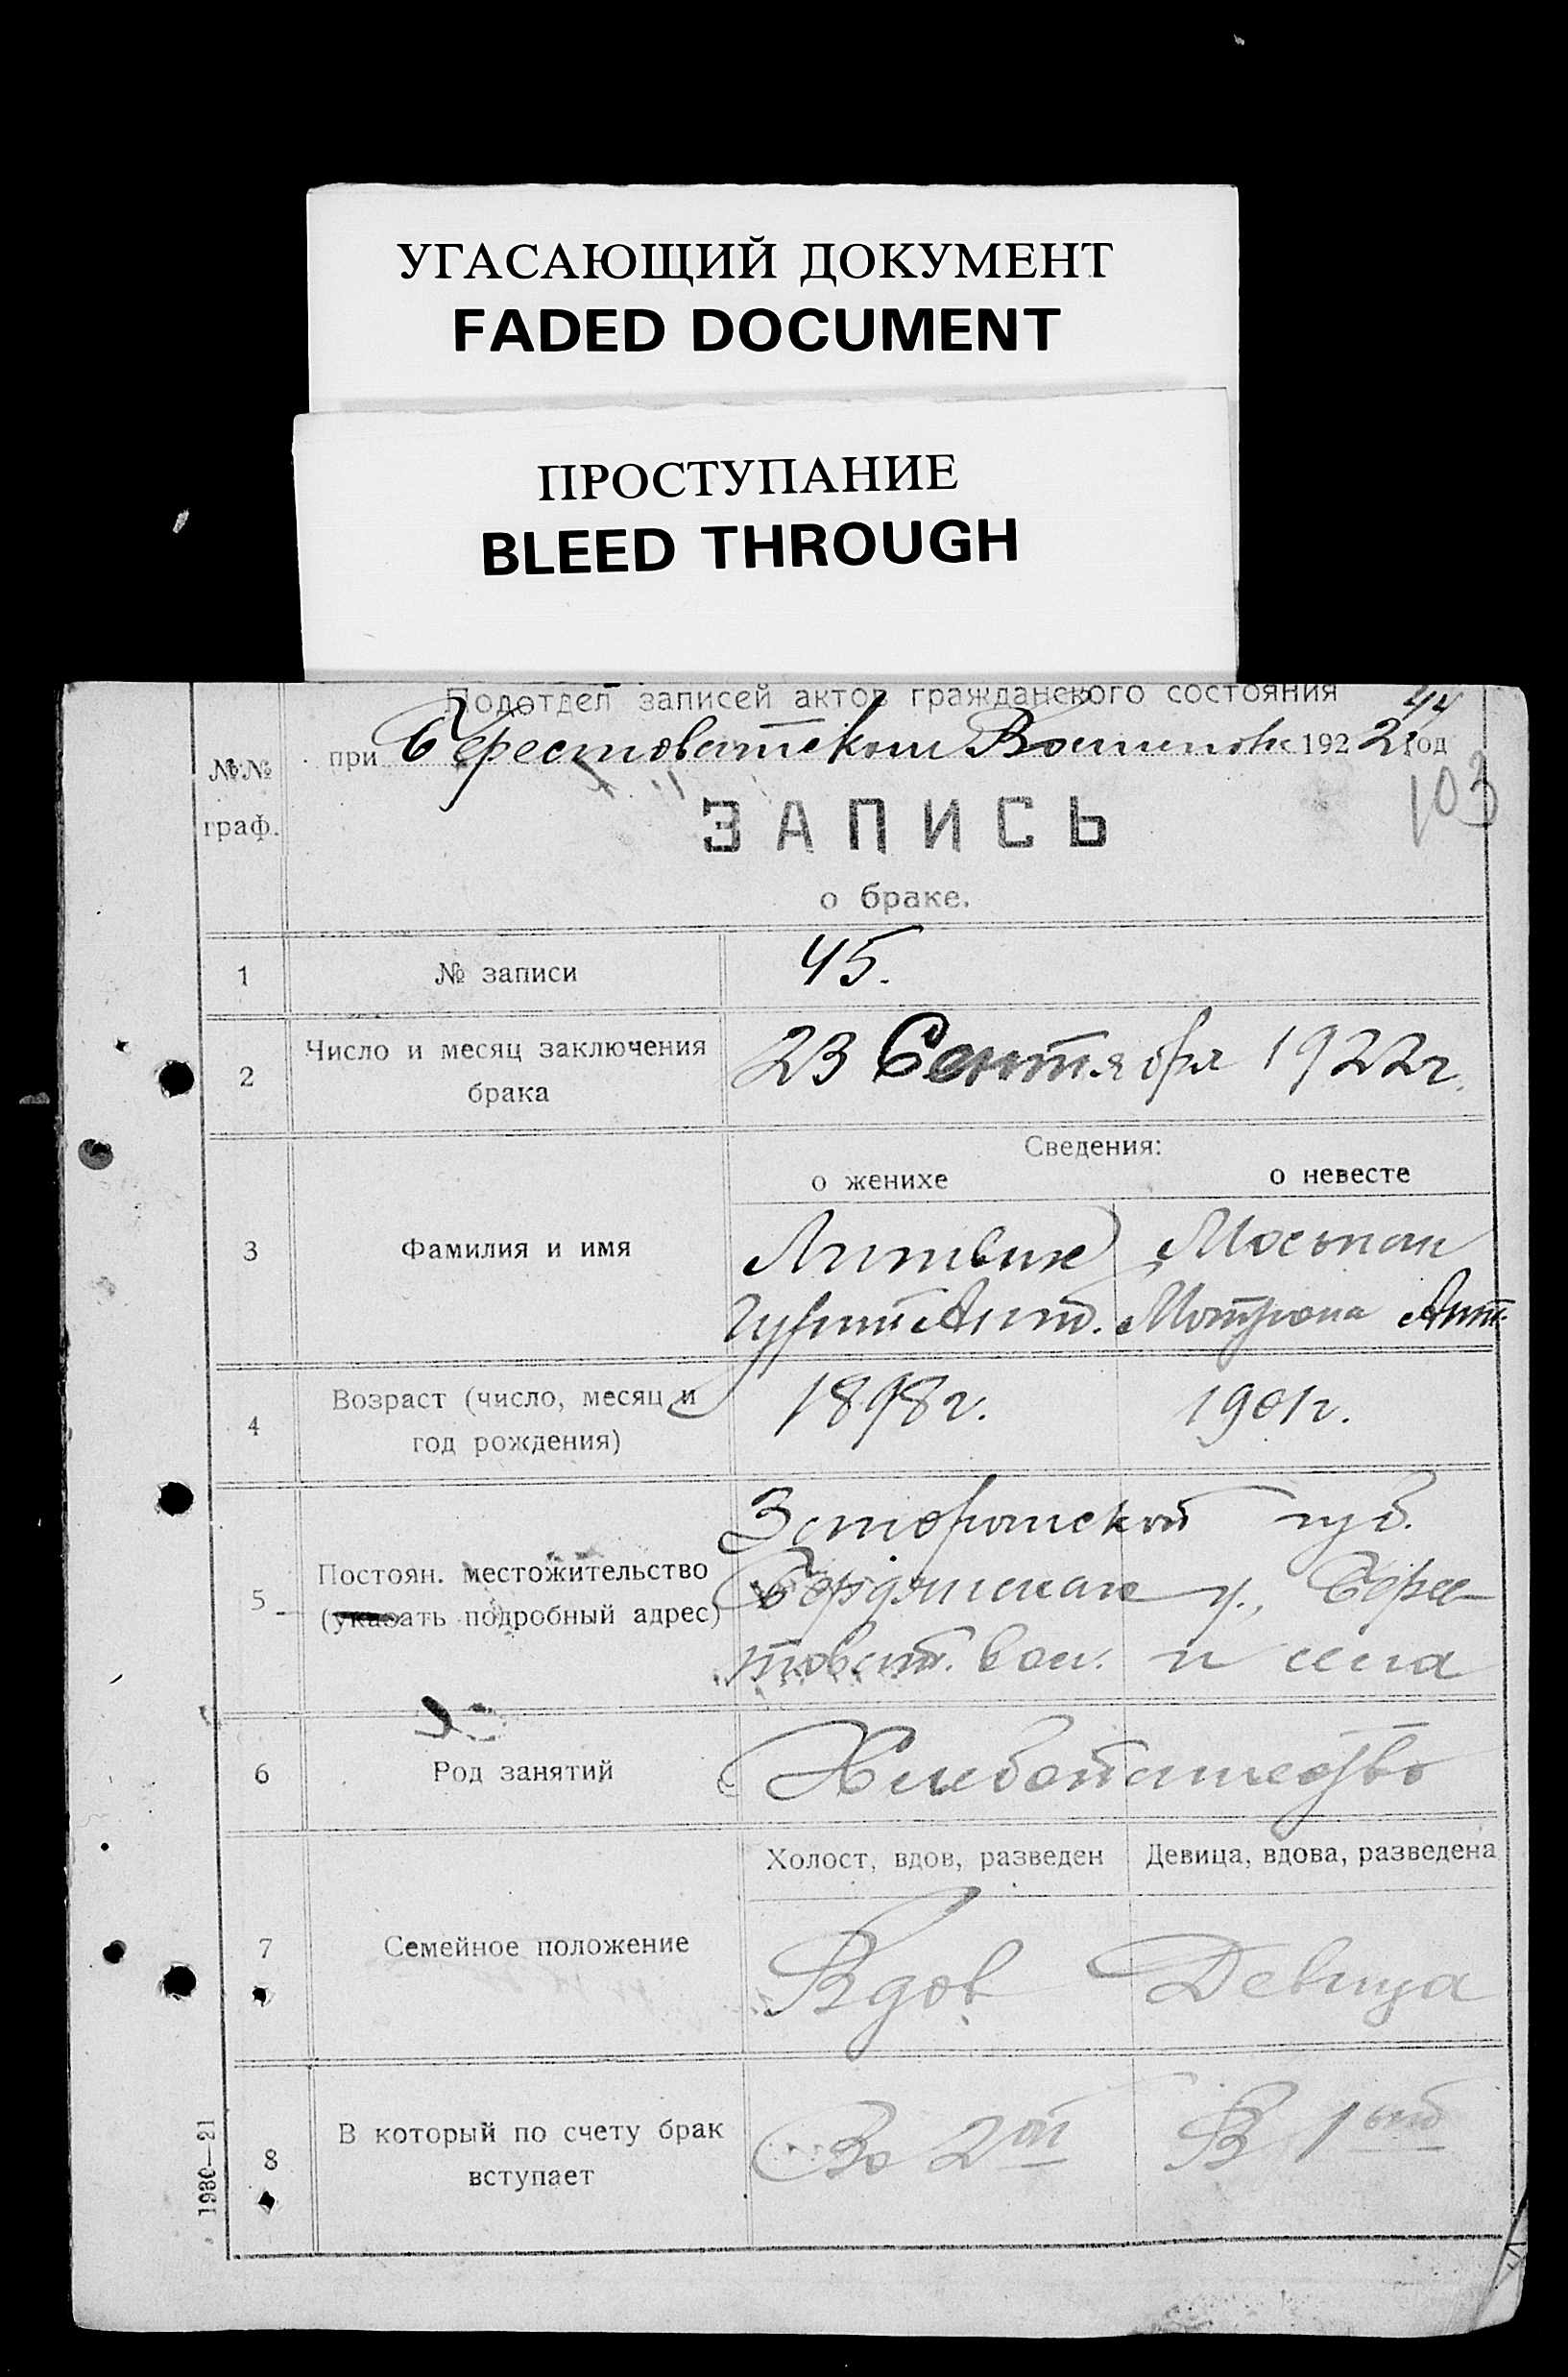 УГАСАЮЩИЙ ДОКУМЕНТ
FADED DOCUMENT
ПРОСТУПАНИЕ
BLEED THROUGH
Подотдел записей актов гражданского состояния
44
при Берестоватском Волисполк 1922 год
№№
граф.
103
ЗАПИСЬ
о браке.
1 № записи 45.
2 Число и месяц заключения
брака
23 Сентября 1922 г.
Сведения:
о женихе о невесте
3 Фамилия и имя
Литвин Моспан
Гурий Ант. Мотрона Ант.
4 Возраст (число, месяц и
год рождения)
1898 г. 1901 г.
5 Постоян. местожительство
(указать подробный адрес)
губ.
Бердянская у., Берес-
товат. вол. и села
6 Род занятий Хлебопашество
Холост, вдов, разведен Девица, вдова, разведена
7 Семейное положение Вдов Девица
8 В который по счету брак
вступает
Во 2ой В 1ый
1930—21